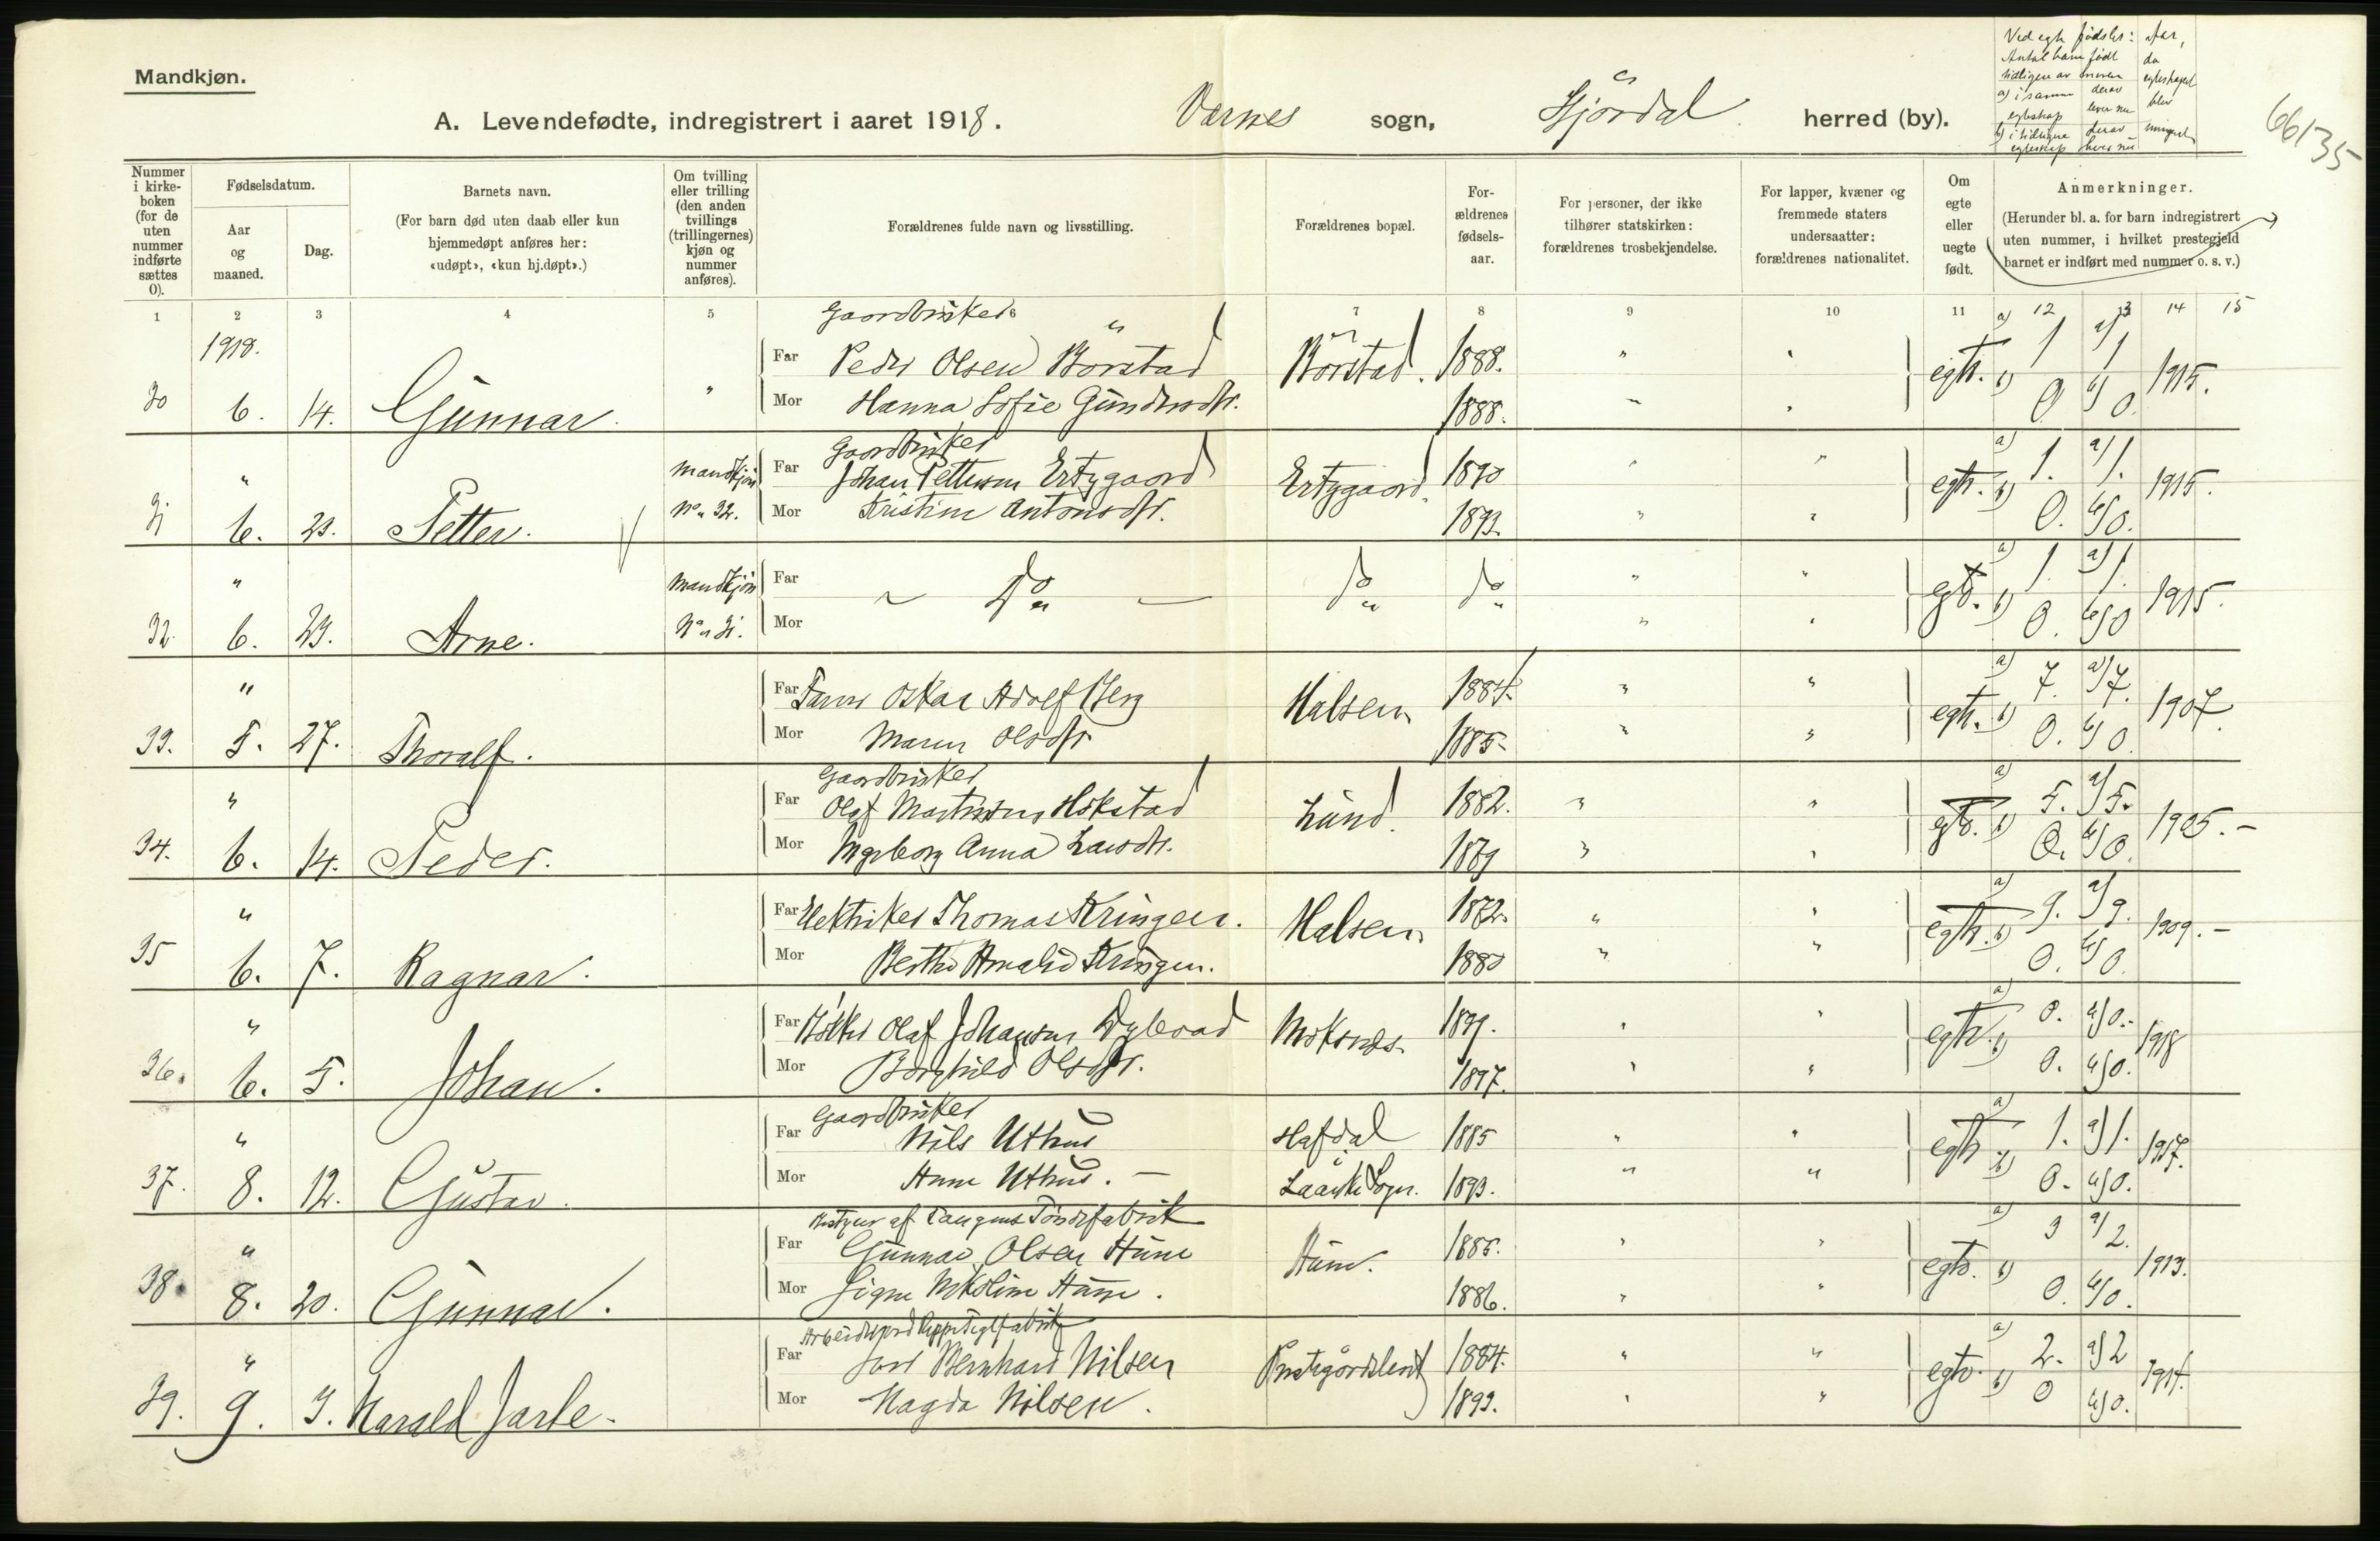 Mandkjøn.
A. Levendefødte, indregistrert i aaret 1918. Værnes sogn, Stjørdal herred (by).
Ved egte fødsler: Antal barn født tidligere av moren
a) i samme egteskap derav lever nu
b) i tidligere egteskap derav lever nu
Aar, da egteskapet blev inngaat
66135
Nummer i kirke-boken (for de uten nummer indførte sættes 0).
Fødselsdatum.
Aar og maaned.
Dag.
Barnets navn.
(For barn død uten daab eller kun hjemmedøpt anføres her: «udøpt», «kun hj.døpt».)
Om tvilling eller trilling (den anden tvillings (trillingernes) kjøn og nummer anføres).
Forældrenes fulde navn og livsstilling.
Forældrenes bopæl.
For-ældrenes fødsels-aar.
For personer, der ikke tilhører statskirken: forældrenes trosbekjendelse.
For lapper, kvæner og fremmede staters undersaatter: forældrenes nationalitet.
Om egte eller uegte født.
Anmerkninger.
(Herunder bl. a. for barn indregistrert uten nummer, i hvilket prestegjeld barnet er indført med nummer o. s. v.)
1 2 3 4 5 6 7 8 9 10 11 12 13 14 15
1918.
Gaardbruker
30 6. 14. Gunnar. " Far Peder Olsen Borstad Børstad. 1888. " " egte. a) 1 a) 1 1915.
Mor Hanna Sofie Gundersdtr. 1888. " " b) 0 b) 0.
Gaardbruker
" Mandkjøn Far Johan Pettersen Ertzgaard Ertzgaard. 1890 " " egte. a) 1. a) 1. 1915.
31 6. 23. Petter. No 32. Mor Kristine Antonsdtr. 1893. " " b) 0. b) 0.
" Mandkjøn Far Do do do " " egte. a) 1. a) 1. 1915.
32. 6. 23. Arne. No 31. Mor " " b) 0. b) 0
" Far Oskar Adolf Berg Halsen 1884. " " egte. a) 7. a) 7. 1907.
33. 5. 27. Thoralf. Mor Maren Olsdtr 1885. " " b) 0. b) 0.
Gaardbruker
" Far Olaf Martinsen Hokstad Lund. 1882. " " egte. a) 5. a) 5. 1905. -
34. 6. 14. Peder. Mor Ingeborg Anna Larsdtr. 1879 " " b) 0. b) 0.
" Far Elektriker Thomas Kringen. Halsen 1872. " " egte. a) 9. a) 9. 1909. -
35 6. 7. Ragnar. Mor Berthe Amalie Kringen. 1880 " " b) 0. b) 0.
" Far Olaf Johansen Dybvad Moksnes. 1899. " " egte. a) 0. a) 0. 1918
36. 6. 5. Johan. Mor Borghild Olsdtr. 1897. " " b) 0. b) 0.
Gaardbruker
" Far Nils Uthus Hafdal 1885 " " egte a) 1. a) 1. 1917.
37. 8. 12. Gustav. Mor Anne Uthus. - Laanke Sogn. 1893. " " b) 0. b) 0.
Bestyrer af Tangens Tøndefabrik
" Far Gunnar Olsen Hune Hune. 1885. " " egte. a) 3 a) 2. 1913.
38. 8. 20. Gunnar. Mor Signe Nikoline Hune. 1886. " " b) 0. b) 0.
" Far Bernhard Nilsen 1884. " " egte. a) 2. a) 2 1914.
39. 9. 3. Harald Jarle. Mor Magda Nilsen. 1893. " " b) 0 b) 0.